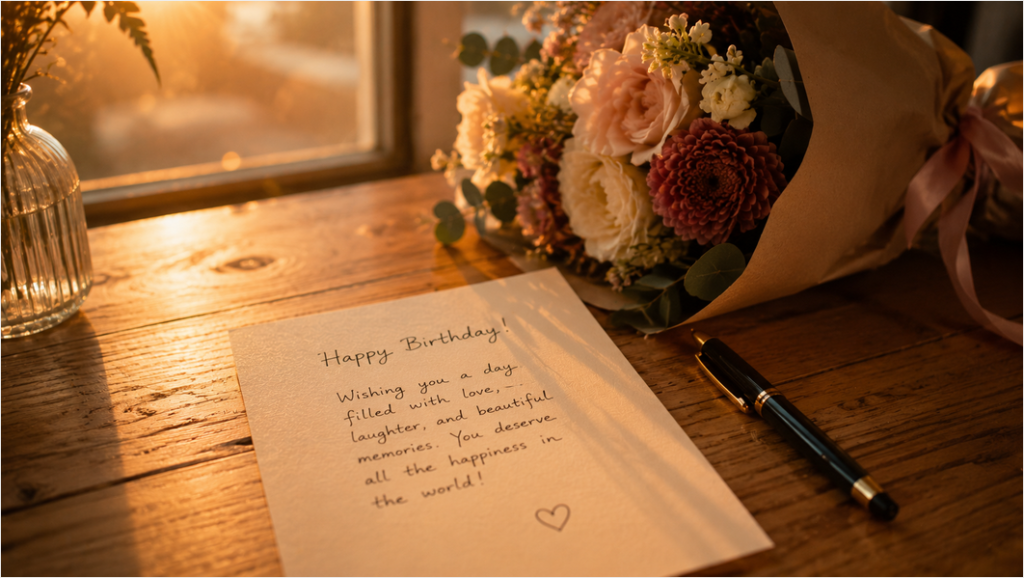 Happy Birthday!
Wishing you a day
filled with love,
laughter, and beautiful
memories. You deserve
all the happiness in
the world!